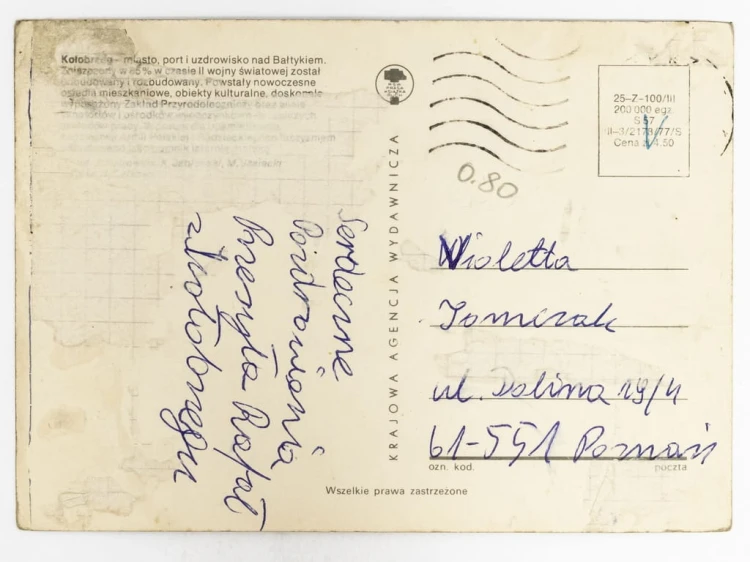 Kołobrzeg – miasto, port i uzdrowisko nad Bałtykiem.
Zniszczony w 85% w czasie II wojny światowej został
odbudowany i rozbudowany. Powstały nowoczesne
osiedla mieszkaniowe, obiekty kulturalne, doskonale
wyposażony Zakład Przyrodoleczniczy oraz
Serdeczne
Pozdrowienia
Przesyła Rafał
z Kołobrzegu
KRAJOWA AGENCJA WYDAWNICZA
25–Z–100/III
200 000 egz.
S 57
II–3/2178/77/S
Cena zł 4.50
0.80
Wioletta
Tomczak
ul. Dolina 19/4
61-551 Poznań
ozn. kod. poczta
Wszelkie prawa zastrzeżone